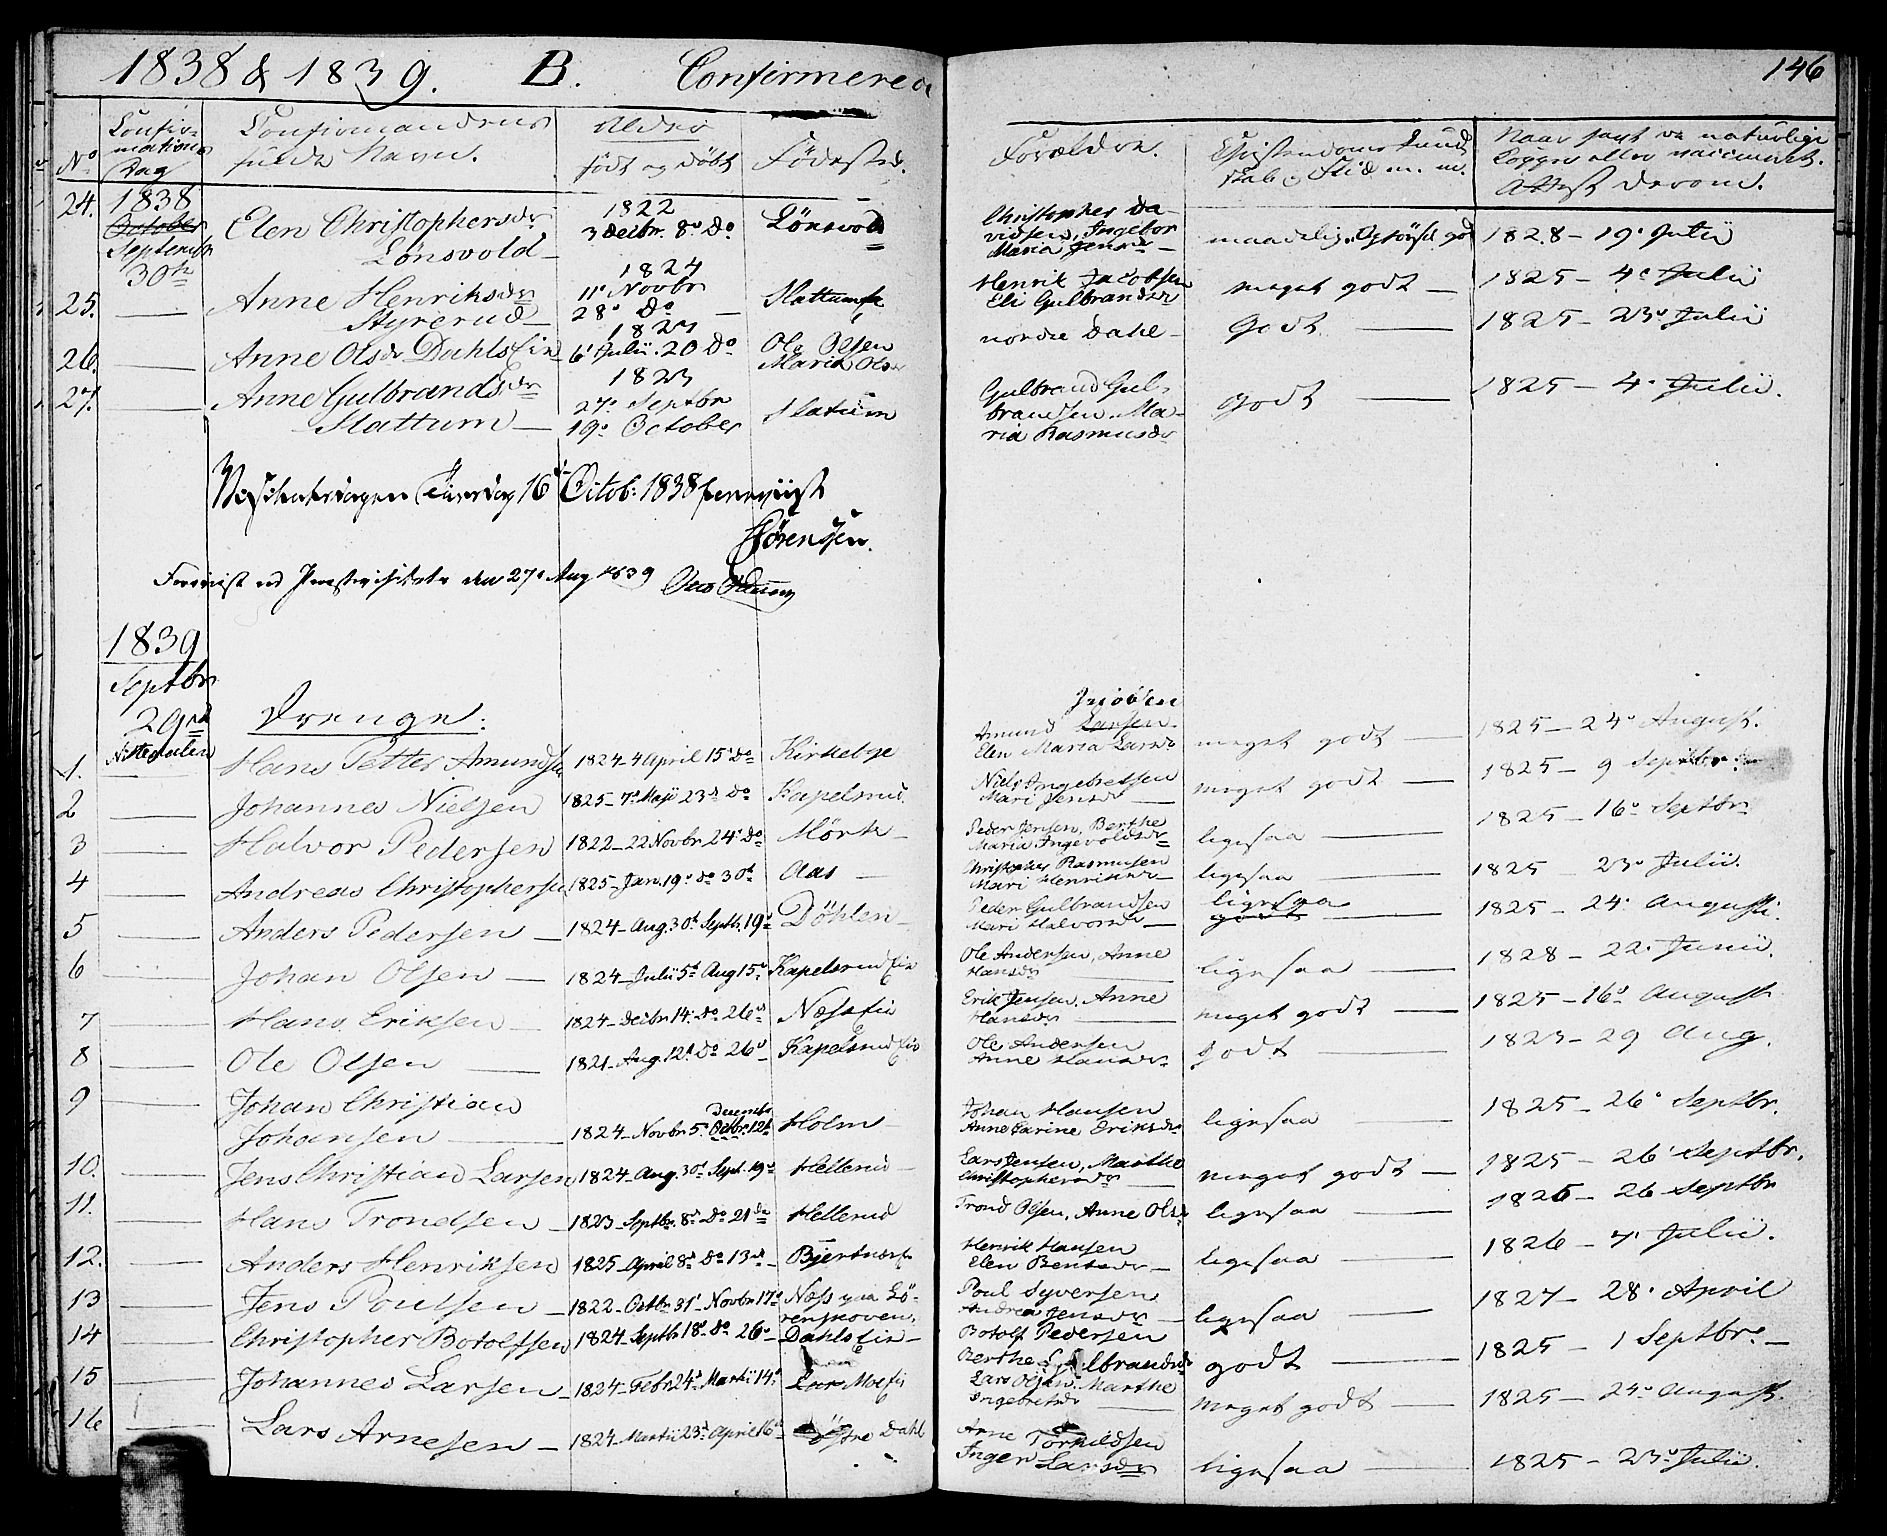 1838 & 1839. B. Confirmerede 146
No
Confirmations Dag
Confirmandens fulde Navn.
Alder født og døbt
Fødested.
Forældre.
Christendoms Kundskab og Flid m. m.
Naar havt de naturlige Kopper eller vaccineret. Attest derom.
24. 1838 October Septembr 30te Elen Christophersdr Lønsvold 1822 3 Decbr. 8de Do Lønsvold Christopher Davidsen, Ingebor Maria Jensdr maadelig, godt 1828 - 19. Julii
25. Anne Henriksdr Styrerud 1824 11 Novbr 28 Do Slattum Henrik Jacobsen Eli Gulbrandsdr meget godt 1825 - 4 Julii
26. Anne Olsdr Dahls Eie 1823 6 Julii. 20 Do Ole Olsen Maria Olsdr nordre Dahl godt 1825 - 23 Julii
27. Anne Gulbrandsdr Slattum 1823 27 Septbr 19 October Slatum Gulbrand Gulbrandsen, Maria Rasmusdr godt 1825 - 4. Julii.
Tiirsdag 16 Octob: 1838 fremviist
Sørenssen.
Foreviist ved Provstevisitats den 27. Aug 1839
1839
Septbr
29de
Nittedalen
Drenge:
1. Hans Petter Amundsen 1824 - 4 April 15 Do Kirkebye Amund Larsen Jacobsen Elen Maria Larsdr meget godt 1825 - 24 August.
2 Johannes Nielsen 1825 - 7 Maji 23 Do Kapelsrud. Niels Ingebretsen Mari Jensdr meget godt 1825 - 9 Septbr
3 Halvor Pedersen 1822 - 22 Novbr 24 Do Mørk Peder Jensen, Berthe Maria Ingevoldsdr ligesaa 1825 - 16 Septbr
4 Andreas Christophersen 1825 - Jan. 19 do 30 Aas Christopher Rasmusen Mari Henriksdr ligesaa 1825 23 Julii.
5 Anders Pedersen 1824 - Aug. 30 Septbr. 19 Døhlen Peder Gulbrandsen Mari Halvorsdr ligesaa godt 1825 - 24. Augusti.
6 Johan Olsen 1824 - Julii 5 Aug 15 Kapelsrud Eie Ole Andersen, Anne Hansdr ligesaa 1828 - 22. Junii.
7 Hans Eriksen 1824 - Decbr 14. Do 26 Næss Eie Erik Jensen, Anne Hansdr meget godt 1825 - 16 August
8 Ole Olsen 1821 - Aug. 12 Do 26 Kapelsrud Eie Ole Andersen Anne Hansdr godt 1823 - 29 Aug.
9 Johan Christian Johansen 1824 - Novbr 5 Octbr. December 12 Holm Johan Hansen Anne Carine Eriksdr ligesaa 1825 - 26 Septbr.
10. Jens Christian Larsen 1824 - Aug. 30 Sept. 19 Hellerud Lars Jensen, Marthe Christophersdr meget godt 1825 - 26 Septbr.
11. Hans Trondsen 1823 - Septbr. 8 Do 21 Hellerud Trond Olsen, Anne Olsdr ligesaa 1825 - 26 Septbr
12. Anders Henriksen 1825 - April 8 Do 13 Bjertnæs Henrik Hansen Elen Bentsdr ligesaa 1826 - 7. Julii.
13 Jens Poulsen 1822 - Octbr 31 - Novbr 17 Næss paa Lørenskoven. Poul Syversen Andrea Jensdr ligesaa 1827 - 28. April
14 Christopher Botolfsen 1824 Septbr 18 do 26 Dahls Eie Botolf Pedersen Berthe Gulbrandsdr godt 1825 - 1 Septbr.
15 Johannes Larsen 1824 - Febr 24 Martii 14 Moe Eie Lars Olsen. Marthe Ingebretsdr meget godt 1825 - 24 August.
16 Lars Arnesen 1824 - Martii 23 April 16 Østre Dahl Arne Torkildsen Inger Larsdr ligesaa 1825 - 23 Julii.